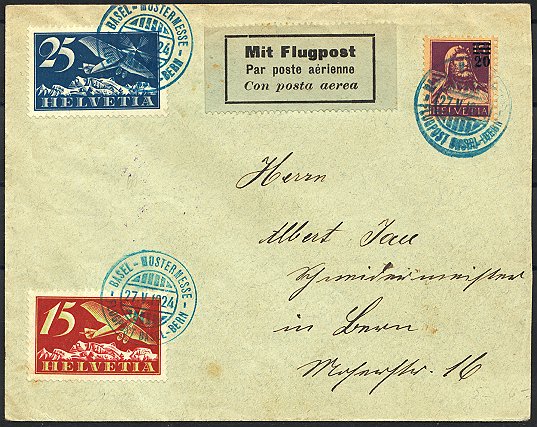 25
HELVETIA
BASEL - MUSTERMESSE -
BERN
Mit Flugpost
Par poste aérienne
Con posta aerea
20
HELVETIA
27.V.
FLUGPOST BASEL-BERN
Herrn
Albert
Schneidermeister
in Bern
Moserstr. 16
BASEL - MUSTERMESSE -
27.V.1924
BASEL-BERN
15
HELVETIA